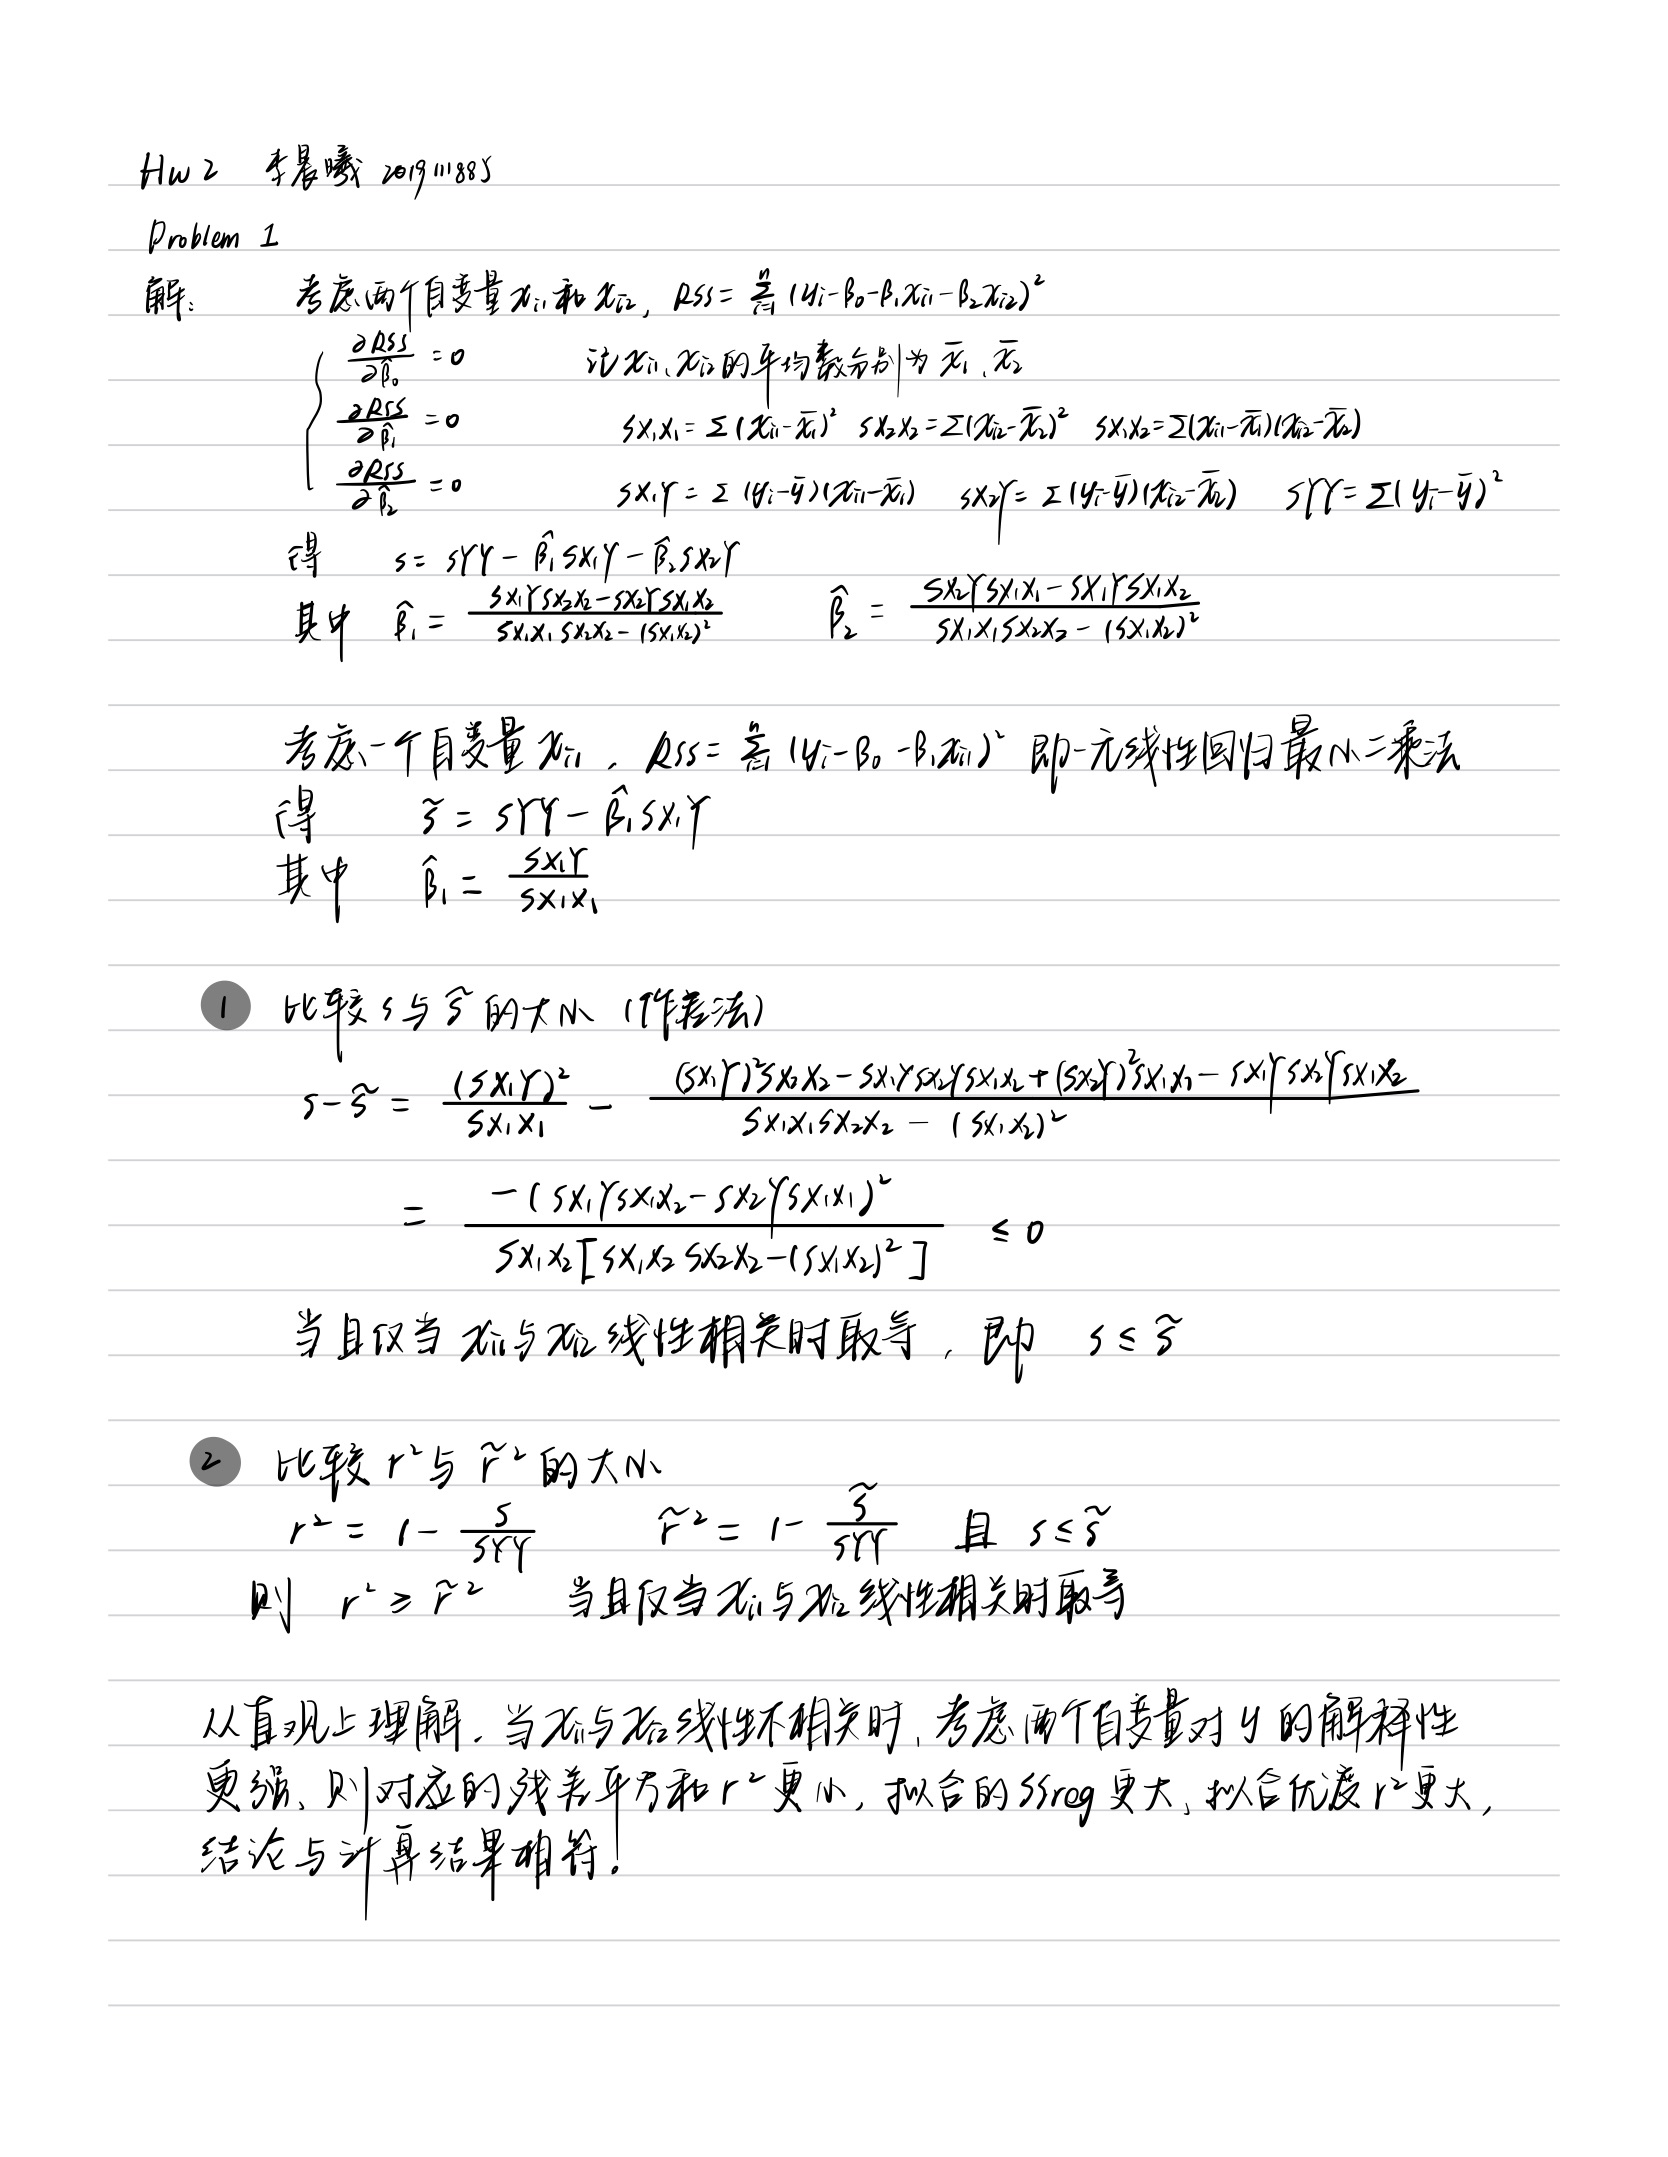 Hw 2 李晨曦 2019111885
Problem 1
解: 考虑两个自变量 xi1 和 xi2, RSS = Σ(i=1→n) (yi-β0-β1xi1-β2xi2)²
∂RSS/∂β̂0 = 0 记 xi1、xi2 的平均数分别为 x̄1、x̄2
∂RSS/∂β̂1 = 0 SX1X1 = Σ(xi1-x̄1)² SX2X2 = Σ(xi2-x̄2)² SX1X2 = Σ(xi1-x̄1)(xi2-x̄2)
∂RSS/∂β̂2 = 0 SX1Y = Σ(yi-ȳ)(xi1-x̄1) SX2Y = Σ(yi-ȳ)(xi2-x̄2) SYY = Σ(yi-ȳ)²
得 s = SYY - β̂1SX1Y - β̂2SX2Y
其中 β̂1 = (SX1YSX2X2 - SX2YSX1X2)/(SX1X1SX2X2 - (SX1X2)²) β̂2 = (SX2YSX1X1 - SX1YSX1X2)/(SX1X1SX2X2 - (SX1X2)²)
考虑一个自变量 xi1, RSS = Σ(i=1→n) (yi-β0-β1xi1)² 即一元线性回归最小二乘法
得 s̃ = SYY - β̂1SX1Y
其中 β̂1 = SX1Y/SX1X1
1 比较 s 与 s̃ 的大小 (作差法)
s-s̃ = (SX1Y)²/SX1X1 - ((SX1Y)²SX2X2 - SX1YSX2YSX1X2 + (SX2Y)²SX1X1 - SX1YSX2YSX1X2)/(SX1X1SX2X2 - (SX1X2)²)
= -(SX1YSX1X2 - SX2YSX1X1)²/(SX1X2[SX1X2SX2X2 - (SX1X2)²]) ≤ 0
当且仅当 xi1 与 xi2 线性相关时取等, 即 s ≤ s̃
2 比较 r² 与 r̃² 的大小
r² = 1 - s/SYY r̃² = 1 - s̃/SYY 且 s ≤ s̃
则 r² ≥ r̃² 当且仅当 xi1 与 xi2 线性相关时取等
从直观上理解, 当 xi1 与 xi2 线性不相关时, 考虑两个自变量对 y 的解释性
更强、则对应的残差平方和 r² 更小, 拟合的 SSreg 更大、拟合优度 r² 更大,
结论与计算结果相符!